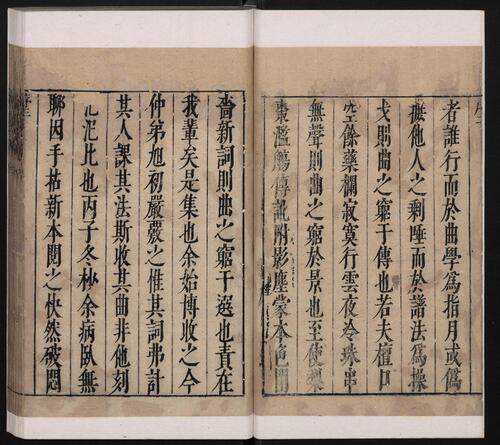 者誰行而於曲學爲指月或僞
摭他人之剩唾而於譜法爲操
戈則曲之窮于傳也若夫檀口
空餘藥欄寂寞行雲夜冷珠串
無聲則曲之窮於景也至使樂
棗濫觴傳訛附影塵蒙本色
嗇新詞則曲之窮于選也責在
我輩矣是集也余始博收之今
仲弟旭初嚴覈之惟其詞弗計
其人課其法斯收其曲非他刻
比也丙子冬杪余病臥無
聊因手拈新本閱之快然破悶